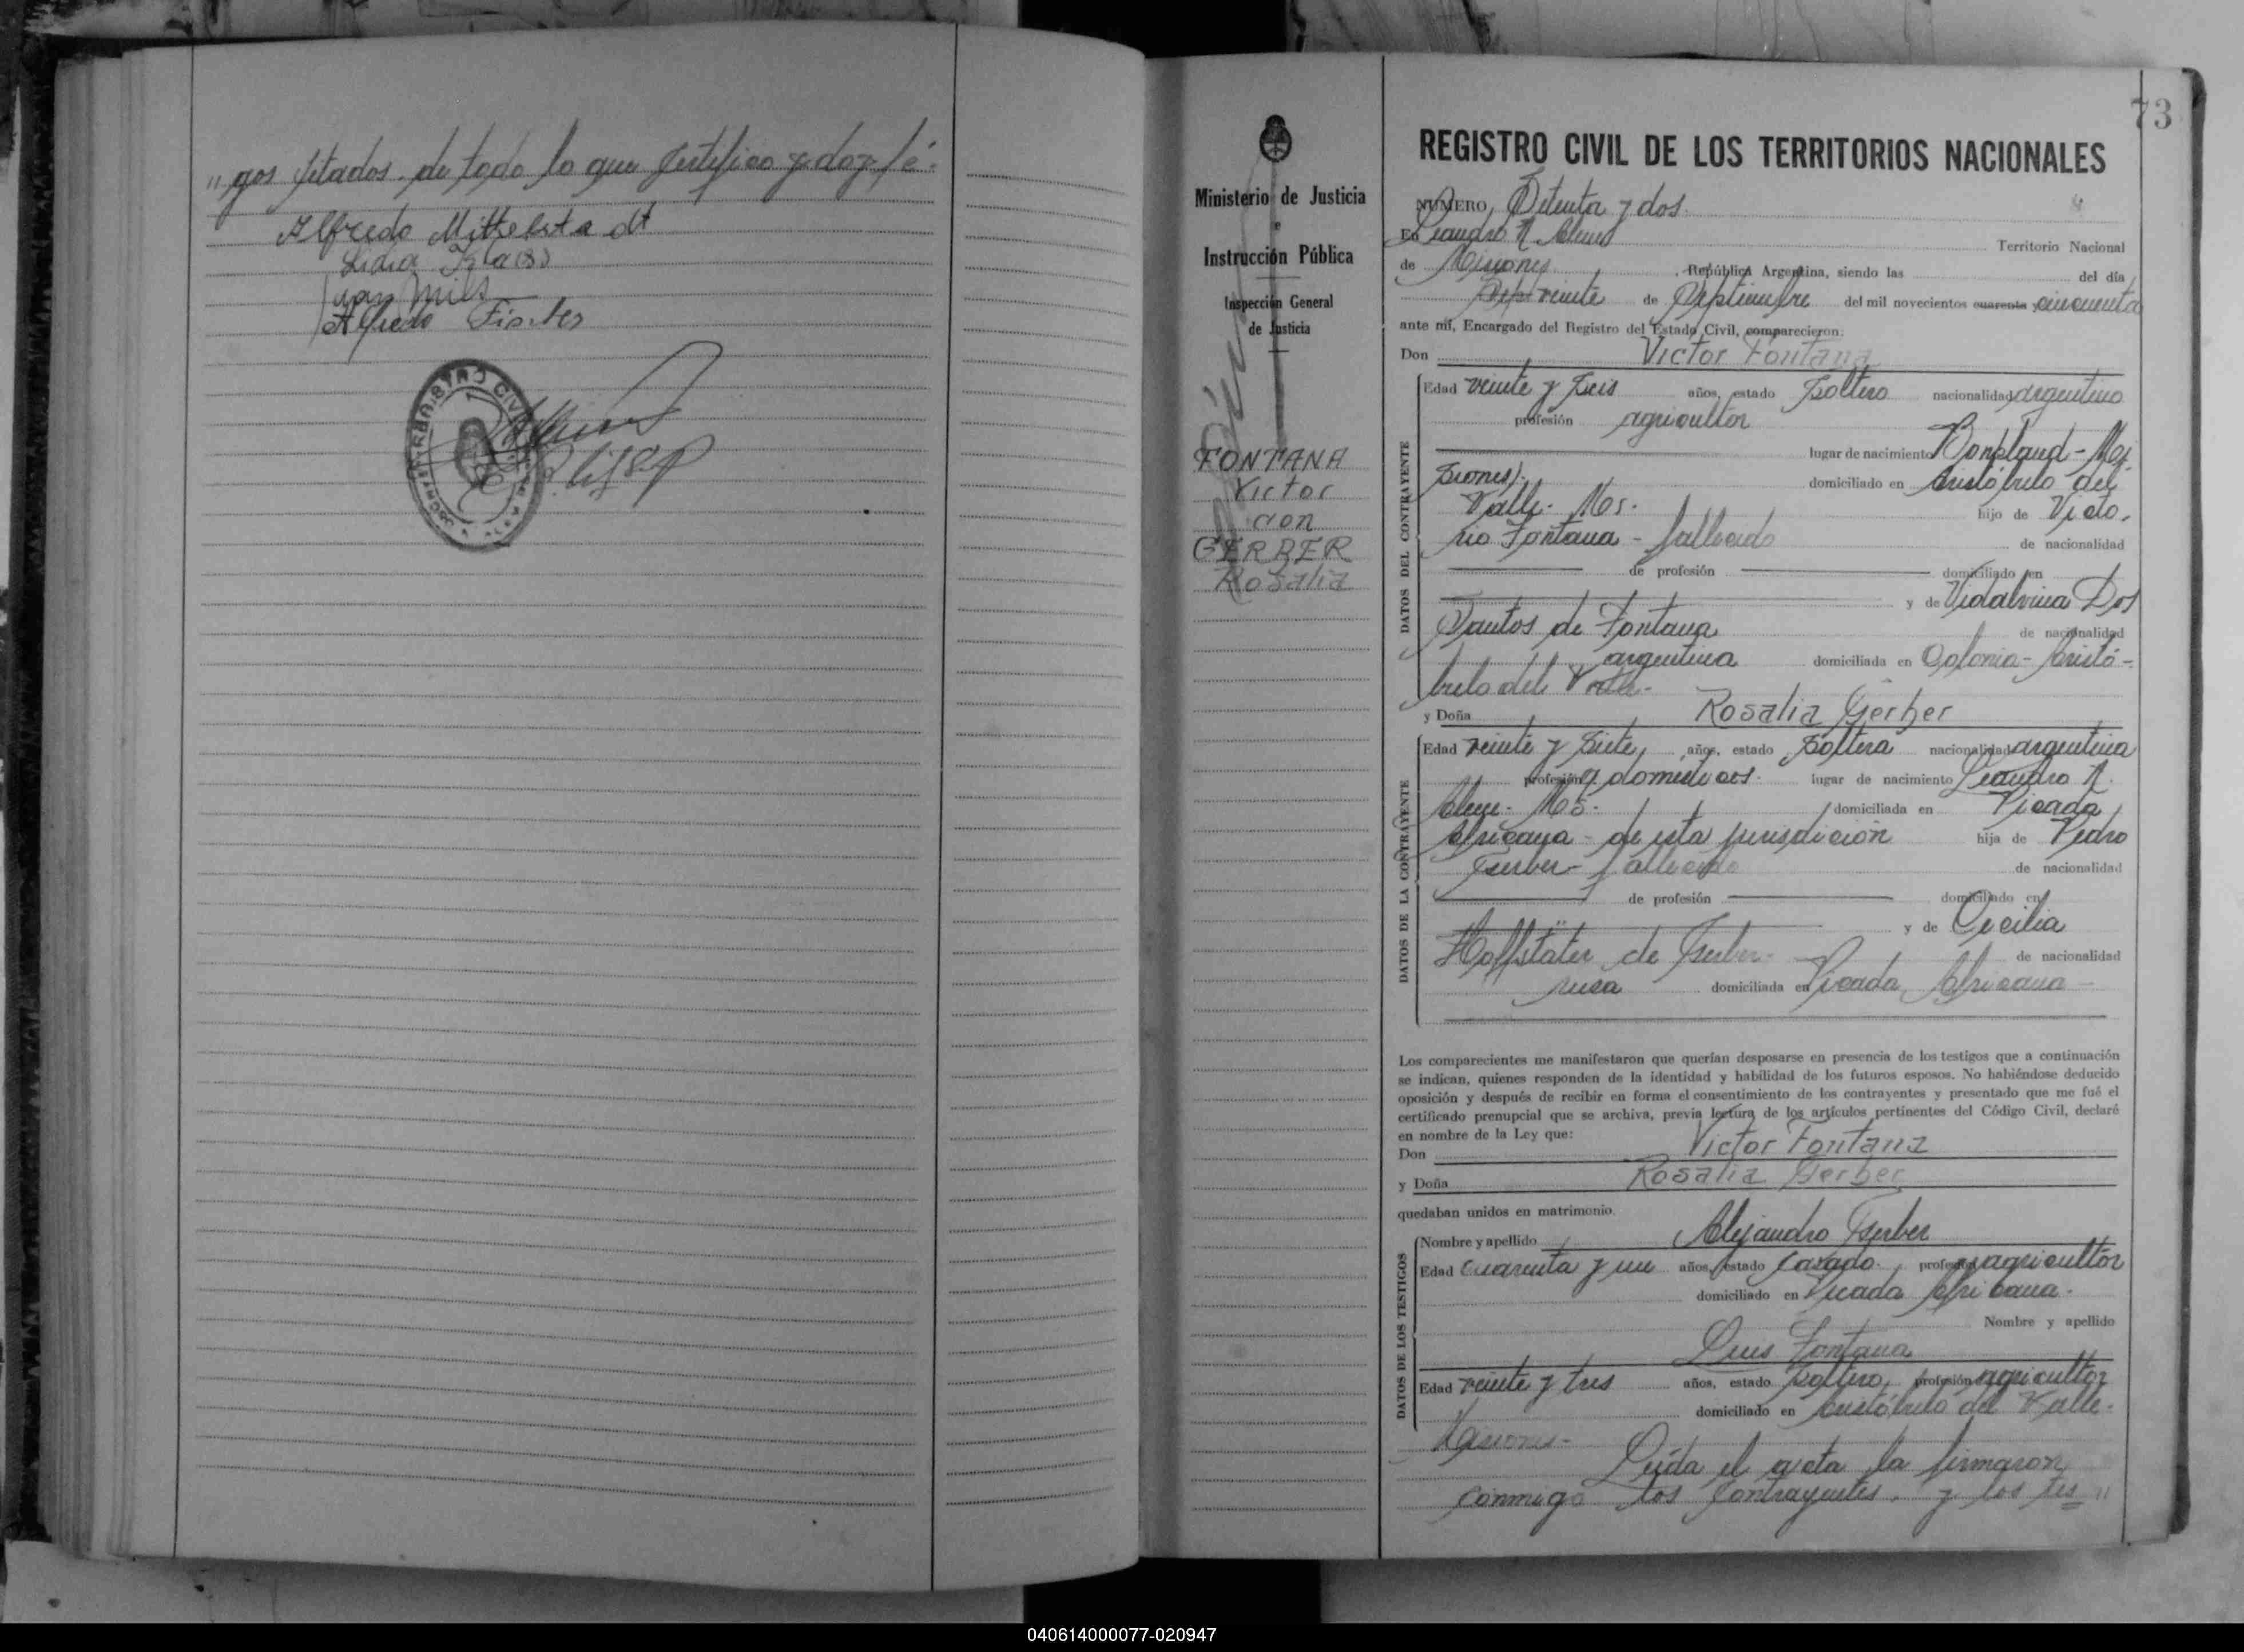 "gos citados. de todo lo que certifico y doy fé.-
Alfredo Mittelstadt
Lidia
Juan Mils
Alfredo
REGISTRO CIVIL
73
Ministerio de Justicia
e
Instrucción Pública
Inspección General
de Justicia
FONTANA
Victor
con
GERBER
Rosalia
REGISTRO CIVIL DE LOS TERRITORIOS NACIONALES
NUMERO Setenta y dos.
En Leandro N. Alem Territorio Nacional
de Misiones , República Argentina, siendo las del día
veinte de Septiembre del mil novecientos cuarenta y cincuenta
ante mí, Encargado del Registro del Estado Civil, comparecieron:
Don Victor Fontana
DATOS DEL CONTRAYENTE
Edad veinte y seis años, estado soltero nacionalidad argentino
profesión agricultor
lugar de nacimiento Bonpland - Mi-
siones). domiciliado en Aristóbulo del
Valle. Mes. hijo de Victo-
rio Fontana - fallecido de nacionalidad
de profesión domiciliado en
y de Vidalvina Dos
Santos de Fontana de nacionalidad
argentina domiciliada en Colonia - Aristó-
bulo del Valle.-
y Doña Rosalia Gerber
DATOS DE LA CONTRAYENTE
Edad veinte y siete, años, estado soltera nacionalidad argentina
profesión q. domésticos. lugar de nacimiento Leandro N.
Alem - Mes. domiciliada en Picada
Africana - de esta jurisdicion hija de Pedro
Gerber - fallecido de nacionalidad
de profesión domiciliado en
y de Cecilia
Hoffstäter de Gerber. de nacionalidad
rusa domiciliada en Picada Africana -
Los comparecientes me manifestaron que querían desposarse en presencia de los testigos que a continuación
se indican, quienes responden de la identidad y habilidad de los futuros esposos. No habiéndose deducido
oposición y después de recibir en forma el consentimiento de los contrayentes y presentado que me fué el
certificado prenupcial que se archiva, previa lectura de los artículos pertinentes del Código Civil, declaré
en nombre de la Ley que:
Don Victor Fontana
y Doña Rosalia Gerber
quedaban unidos en matrimonio.
DATOS DE LOS TESTIGOS
Nombre y apellido Alejandro Gerber
Edad cuarenta y un años, estado casado. profesión agricultor
domiciliado en Picada Africana.
Nombre y apellido
Luis Fontana
Edad veinte y tres años, estado soltero, profesión agricultor
domiciliado en Aristóbulo del Valle.
Misiones-
Leída el acta la firmaron
conmigo los contrayentes. y los tes "
040614000077-020947